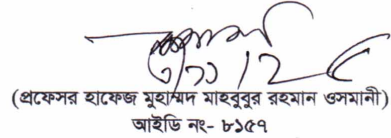 ৩/১১/২৫
(প্রফেসর হাফেজ মুহাম্মদ মাহবুবুর রহমান ওসমানী)
আইডি নং- ৮১৫৭